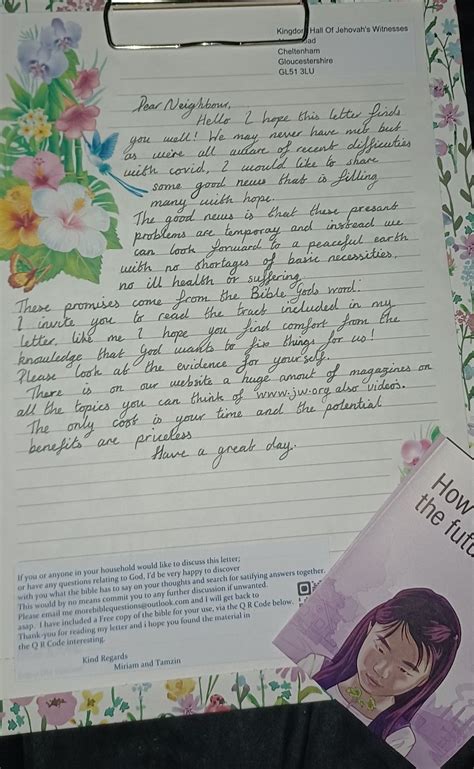 Kingdom Hall Of Jehovah's Witnesses
Cheltenham
Gloucestershire
GL51 3LU
Dear Neighbour,
Hello I hope this letter finds
you well! We may never have met but
as we're all aware of recent difficulties
with covid, I would like to share
some good news that is filling
many with hope.
The good news is that these presant
problems are temporay and instead we
can look forward to a peaceful earth
with no shortages of basic necessities.
no ill health or suffering
These promises come from the Bible, Gods word.
I invite you to read the tract included in my
letter, like me I hope you find comfort from the
knowledge that God wants to fix things for us!
Please look at the evidence for yourself.
There is on our website a huge amout of magazines on
all the topics you can think of www.jw.org also videos.
The only cost is your time and the potential
benefits are priceless
Have a great day.
If you or anyone in your household would like to discuss this letter;
or have any questions relating to God, I'd be very happy to discover
with you what the bible has to say on your thoughts and search for satifying answers together.
This would by no means commit you to any further discussion if unwanted.
Please email me morebiblequestions@outlook.com and I will get back to
asap. I have included a Free copy of the bible for your use, via the Q R Code below.
Thank-you for reading my letter and i hope you found the material in
the Q R Code interesting.
Kind Regards
Miriam and Tamzin
How
the